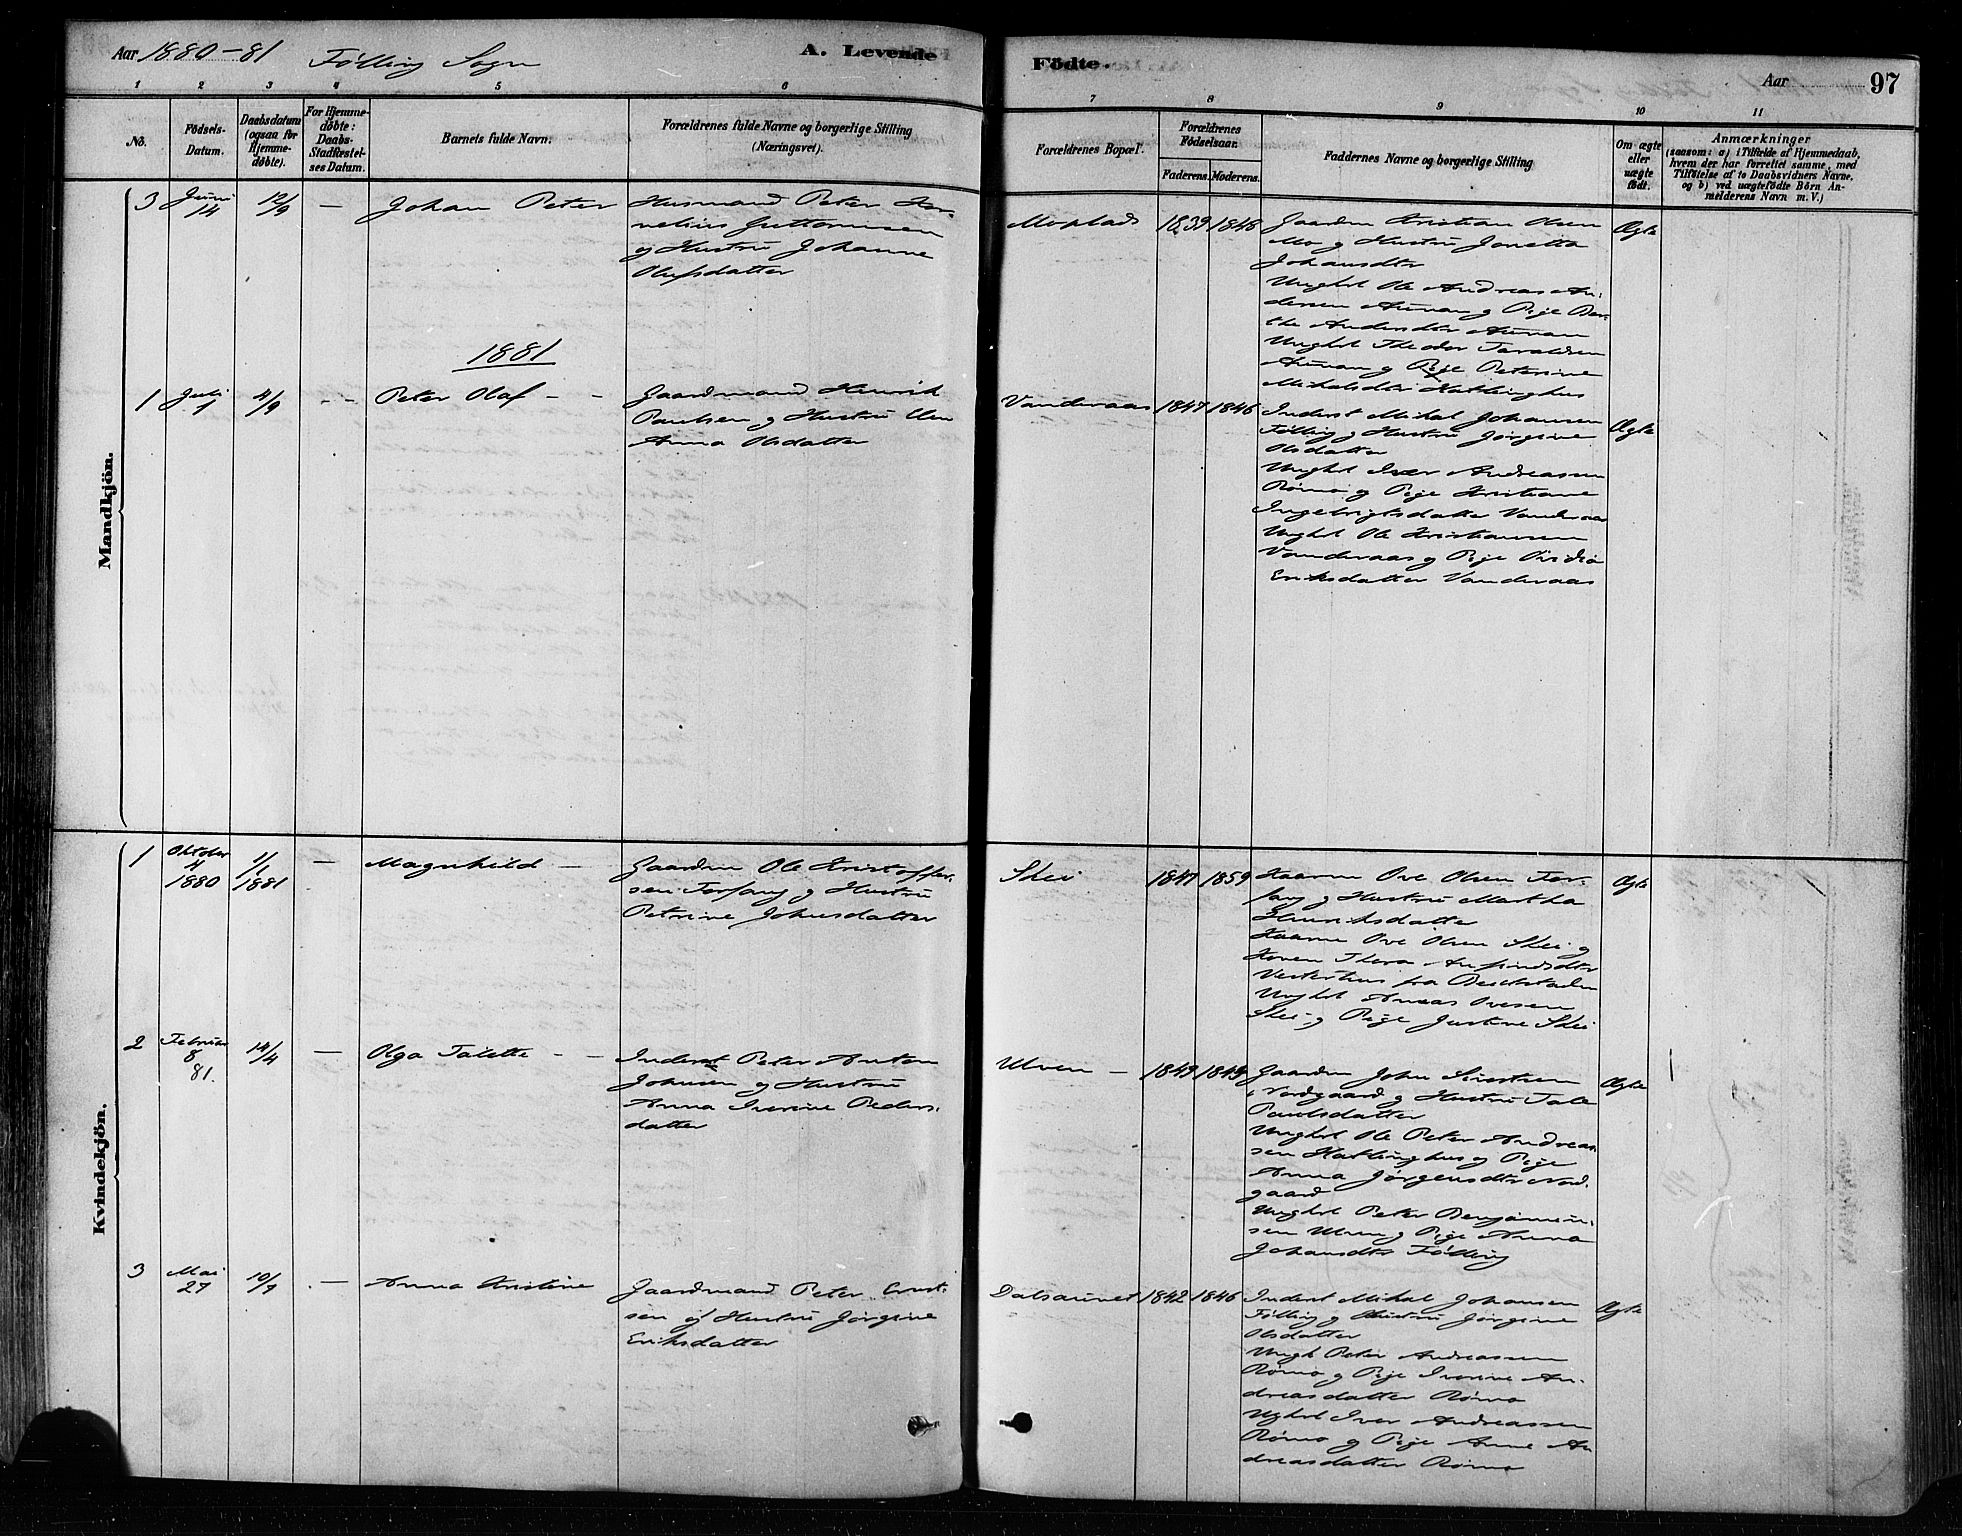 Aar 1880-81 Følling Sogn
A. Levende
Födte.
Aar
97
1 2 3 4 5 6
7 8 9 10 11
No.
Födsels-
Datum.
Daabsdatum
(ogsaa for
Hjemme-
døbte).
For Hjemme-
døbte:
Daabs-
Stadfæstel-
ses Datum.
Barnets fulde Navn.
Forældrenes fulde Navne og borgerlige Stilling
(Næringsvei).
Forældrenes Bopæl.
Forældrenes
Födselsaar.
Faderens. Moderens.
Faddernes Navne og borgerlige Stilling
Om ægte
eller
uægte
født.
Anmærkninger
(saasom: a) i Tilfælde af Hjemmedaab,
hvem der har forrettet samme, med
Tilföielse af to Daabsvidners Navne,
og b) ved uægtefödte Börn An-
melderens Navn m. V.)
Mandkjön.
3
Juni
14
12/9
—
Johan Peter
Husmand Peter Kor-
nelius Guttormsen
og Hustru Johanne
Olufsdatter
Moplads
1839 1848
Gaardm Kristian Olsen
Mo og Hustru Jonetta
Johansdtr
Ungkl Ole Andreas An-
dersen Aunan og Pige Ber-
the Andersdtr Aunan
Ungkl Theodor Taraldsen
Aunan og Pige Peterine
Mikalsdtr Hatlinghus
Ægte
1881
1
Juli
1
4/9
- -
Peter Olaf - -
Gaardmand Henrik
Paulsen og Hustru Elen
Anna Olsdatter
Vanderaas
1847 1846
Inderst Mikal Johansen
Følling og Hustru Jørgine
Olsdatter
Ungkl Iver Andreassen
Rømo og Pige Kristiane
Ingebrigtsdatter Vanderaas
Ungkl Ole Kristiansen
Vanderaas og Pige
Eriksdatter Vanderaas
Ægte
Kvindekjön.
1
Oktober
4
1880
1/1
1881
—
Magnhild —
Gaardm Ole Kristoffer-
sen Forfang og Hustru
Petrine Johnsdatter
Skei
1847 1859
Kaarm Ove Olsen For-
fang og Hustru Martha
Henriksdatter
Kaarm Ove Olsen Skei og
Konen Thora Arfindsdtr
Vesterhus fra Beitstaden
Ungkl Aneas Ovesen
Skei og Pige Justine Skei
Ægte
2
Februar
8
81.
14/4
—
Olga Talette - -
Inderst Peter Anton
Johnsen og Hustru
Anna Iverine Peders-
datter
Ulven —
1849 1849
Gaardm John Sivertsen
i Nordgaard og Hustru Tale
Paulsdatter
Ungkl Ole Peter Andreas-
sen Hatlinghus og Pige
Anna Jørgensdtr Nord-
gaard
Ungkl Peter Benjamin-
sen Ulven og Pige Anna
Johansdtr Følling
Ægte
3
Mai
27
10/7
—
Anna Kristine
Gaardmand Peter Ernst-
sen og Hustru Jørgine
Eriksdatter
Dalsaunet
1842 1846
Inderst Mikal Johansen
Følling og Hustru Jørgine
Olsdatter
Ungk Peter Andreassen
Rømo og Pige Iverine An-
dreasdatter Rømo
Ungkl Iver Andreassen
Rømo og Pige Anne An-
dreasdatter Rømo
Ægte